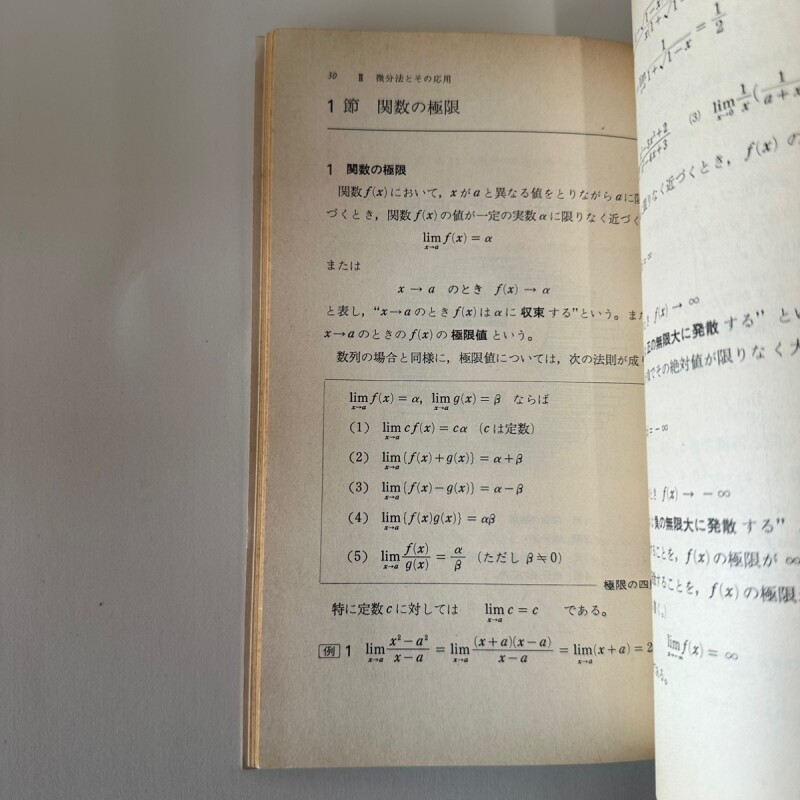 30 Ⅱ 微分法とその応用
1節 関数の極限
1 関数の極限
関数 f(x) において，x が a と異なる値をとりながら a に限
づくとき，関数 f(x) の値が一定の実数 α に限りなく近づく
lim x→a f(x) = α
または
x → a のとき f(x) → α
と表し，“x→a のとき f(x) は α に 収束 する”という。また
x→a のときの f(x) の 極限値 という。
数列の場合と同様に，極限値については，次の法則が成り
lim x→a f(x) = α, lim x→a g(x) = β ならば
(1) lim x→a cf(x) = cα (c は定数)
(2) lim x→a {f(x)+g(x)} = α+β
(3) lim x→a {f(x)−g(x)} = α−β
(4) lim x→a {f(x)g(x)} = αβ
(5) lim x→a f(x)/g(x) = α/β (ただし β≒0)
極限の四
特に定数 c に対しては lim x→a c = c である。
例 1 lim x→a (x²−a²)/(x−a) = lim x→a (x+a)(x−a)/(x−a) = lim x→a (x+a) = 2
1/(1+√1−x) = 1/2
(3) lim x→0 1/x (1/(a+x
りなく近づくとき，f(x) の
f(x) → ∞
正の無限大に発散 する” とい
でその絶対値が限りなく大
= −∞
f(x) → −∞
負の無限大に発散 する”
ことを，f(x) の極限が ∞
することを，f(x) の極限
lim f(x) = ∞